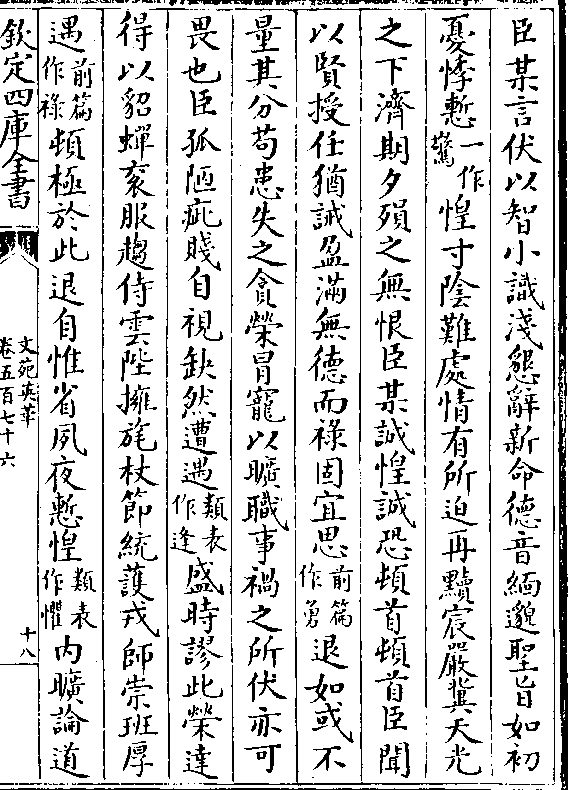 臣某言伏以智小識淺懇辭新命德音緬邈聖旨如初
憂悸慙一作驚惶寸陰難處情有所迫再黷宸嚴冀天光
之下濟期夕殞之無恨臣某誠惶誠恐頓首頓首臣聞
以賢授任猶誡盈滿無德而祿固宜思前篇作勇退如或不
量其分苟患失之貪榮冒寵以曠職事禍之所伏亦可
畏也臣孤陋疵賤自視缺然遭遇類表作逢盛時謬此榮達
得以貂蟬衮服趨侍雲陛擁旄杖節統護戎師崇班厚
遇前篇作祿頓極於此退自惟省夙夜慙惶類表作懼内曠論道
欽定四庫全書
文苑英華
卷五百七十六
十八